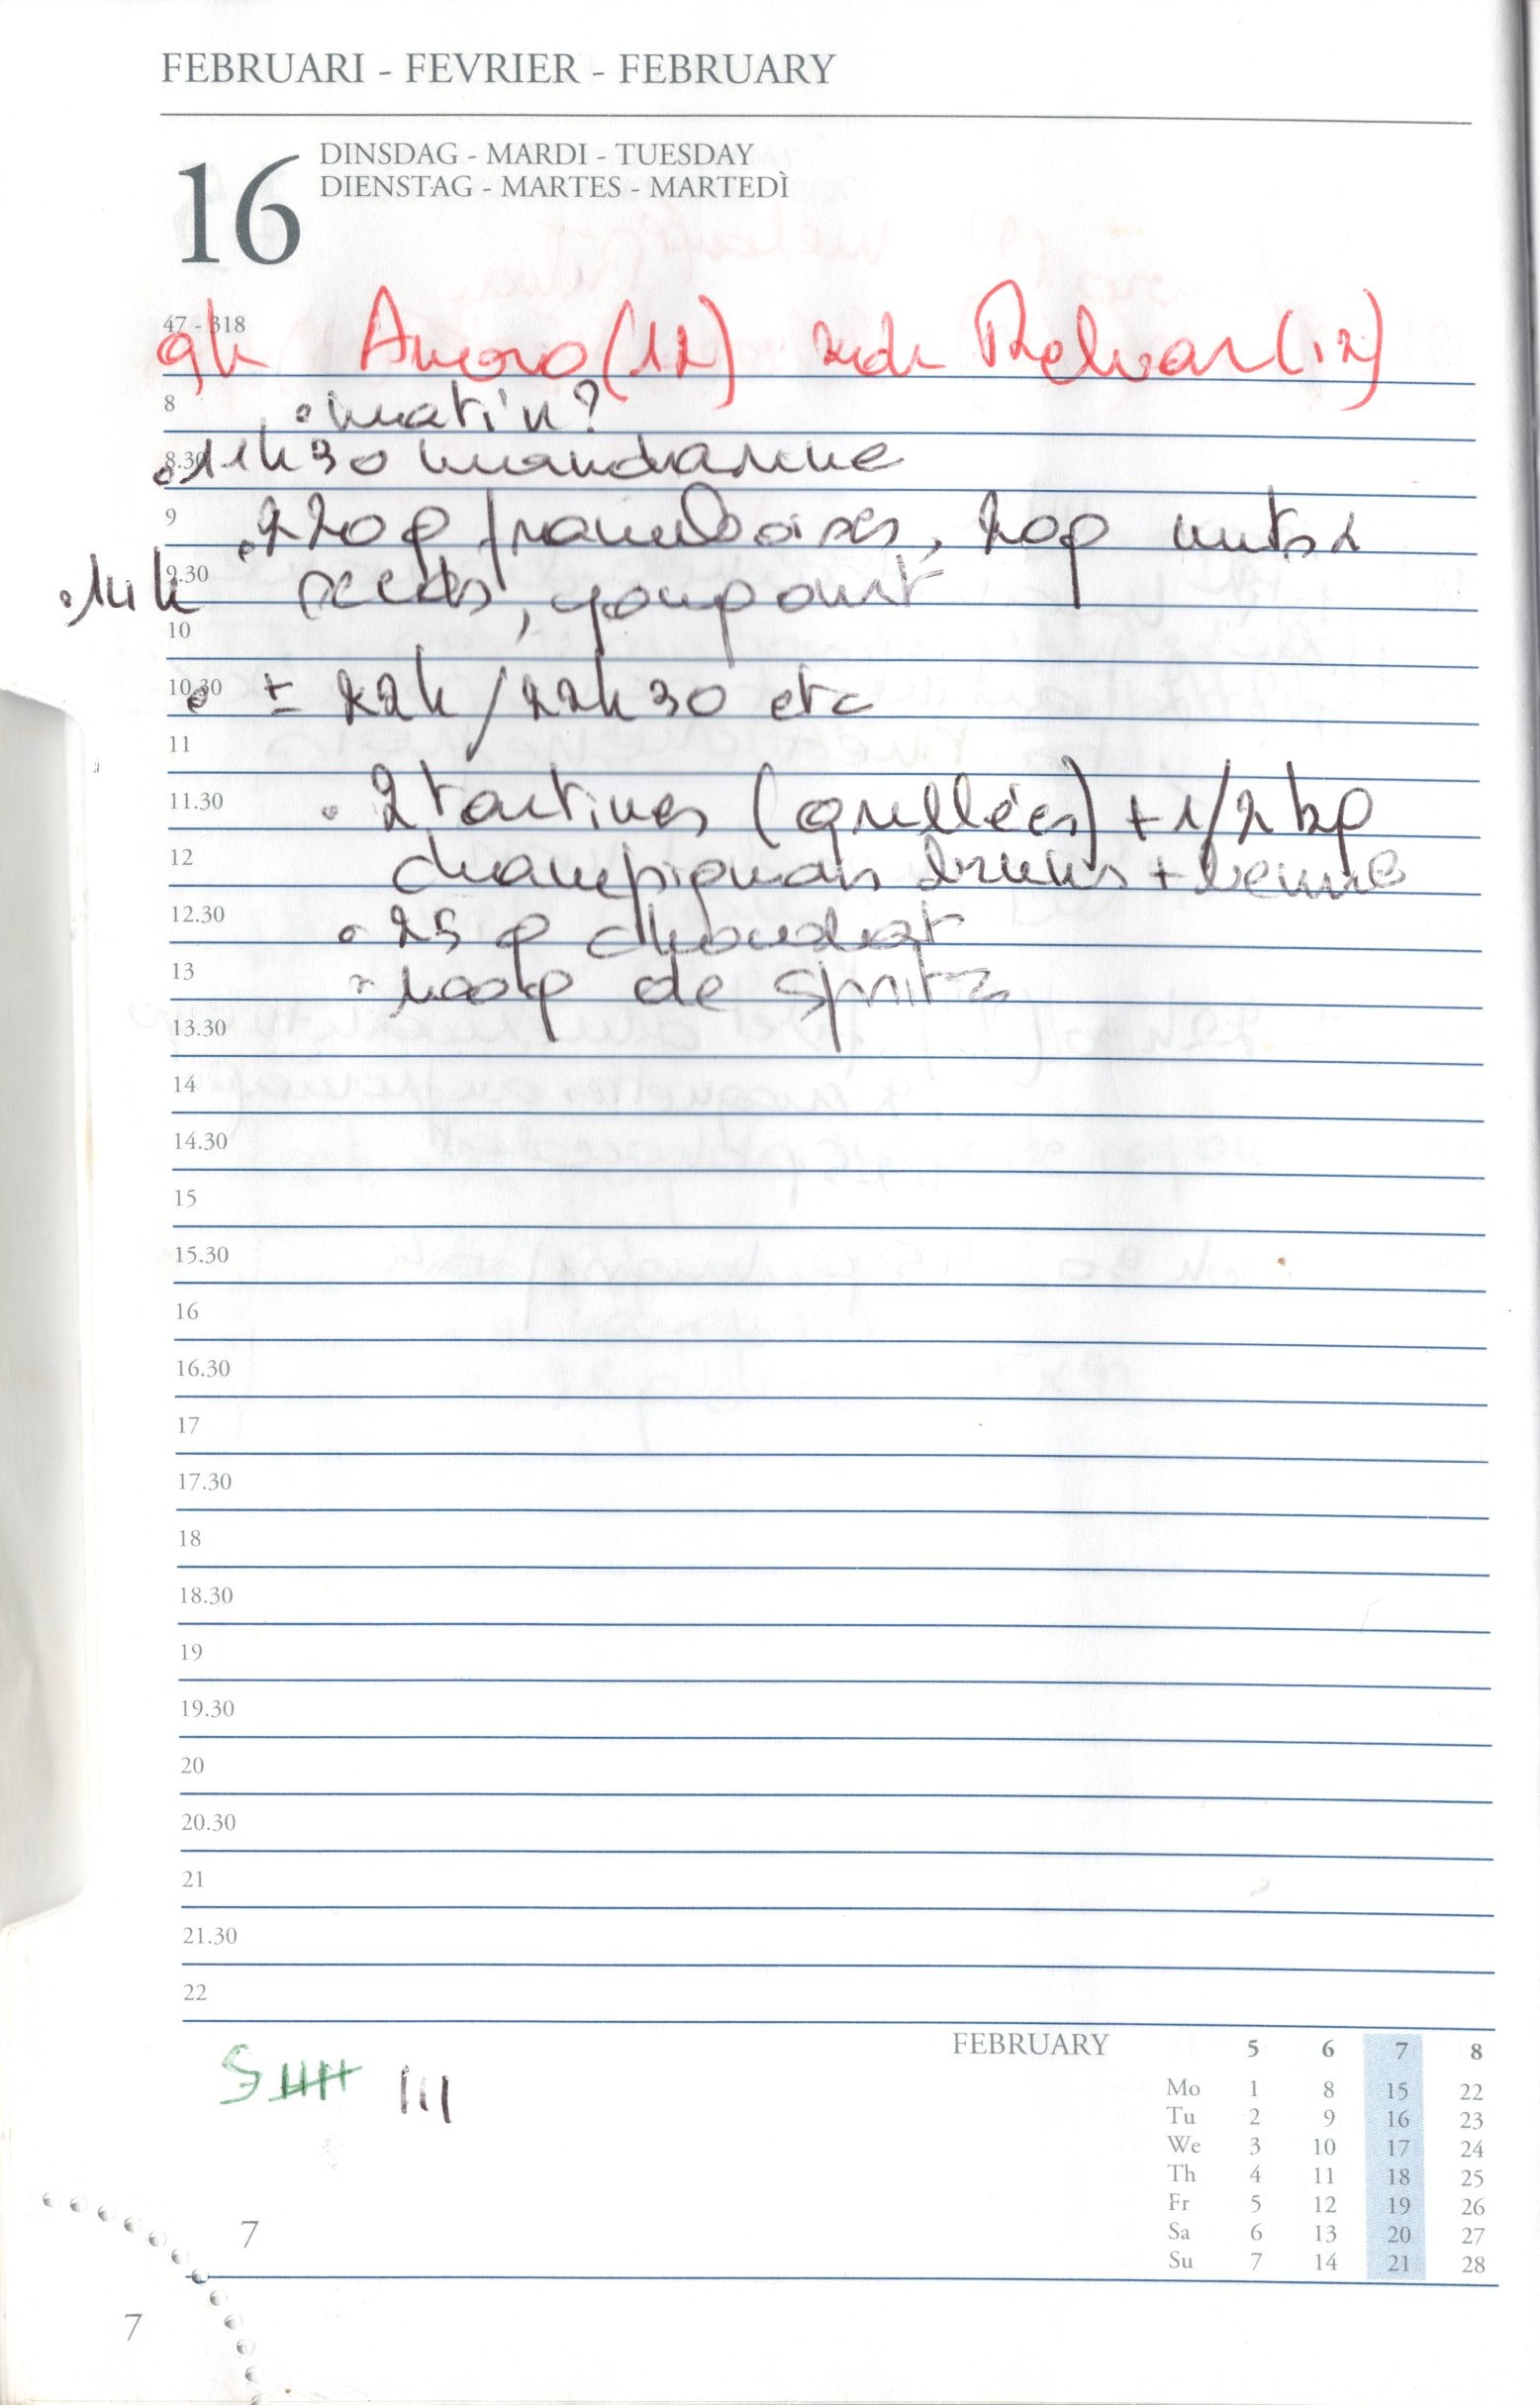 FEBRUARI - FEVRIER - FEBRUARY
16
DINSDAG - MARDI - TUESDAY
DIENSTAG - MARTES - MARTEDÌ
47 - 318
9h (12) (12)
8
matin?
8.30
11h30 mandarine
9
220g framboises, 20g nuts &
9.30
14h seeds, yoghourt
10
10.30
± 22h/22h30 etc
11
11.30
2 tartines (grillées) + 1/2 kg
12
champignons bruns + beurre
12.30
25 g chocolat
13
100g de Spritz
13.30
14
14.30
15
15.30
16
16.30
17
17.30
18
18.30
19
19.30
20
20.30
21
21.30
22
S III
FEBRUARY 5 6 7 8
Mo 1 8 15 22
Tu 2 9 16 23
We 3 10 17 24
Th 4 11 18 25
Fr 5 12 19 26
Sa 6 13 20 27
Su 7 14 21 28
7
7